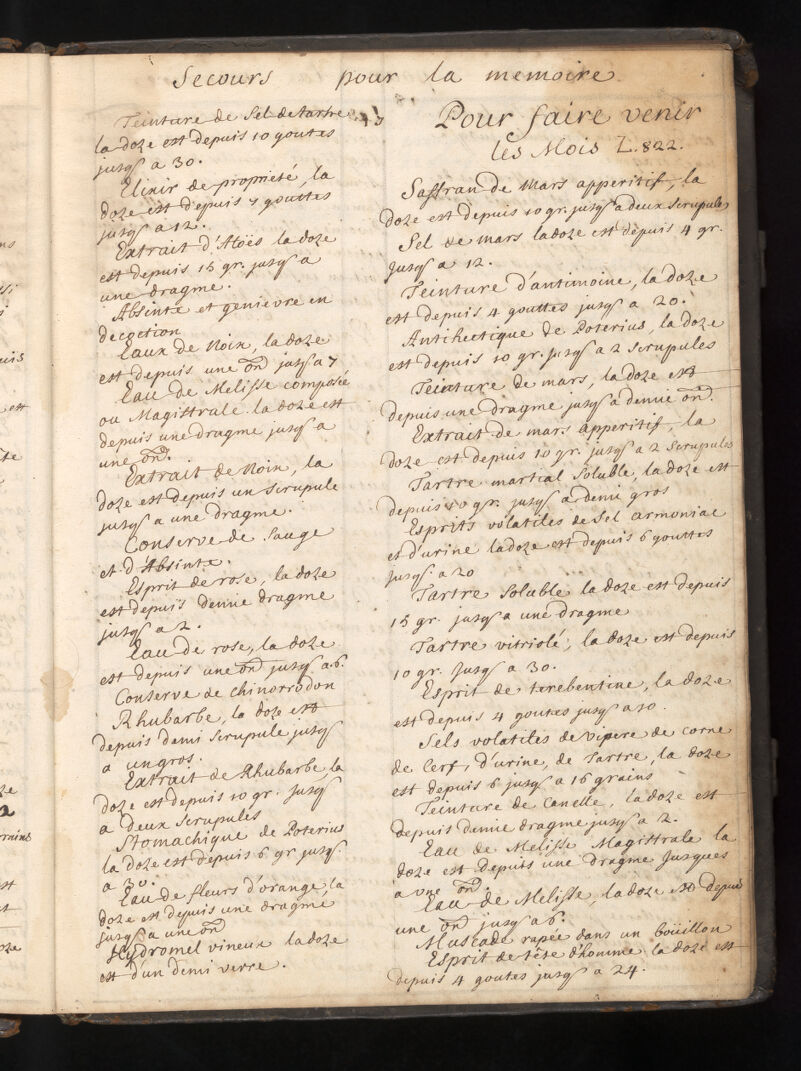 Secours pour la memoire
Teinture de Sel de tartre
la doze est depuis 10 goutes
jusq' a 30.
Elixir de proprieté, la
doze est depuis 7 gouttes
jusq' a 12.
Extrait d'Aloës la doze
est depuis 15 gr. jusq' a
une dragme.
Absinte et genievre en
decoction
Eaux de Noix, la doze
est depuis une on̄ jusq' a 7
Eau de Melisse composée
ou Magistrale la doze est
depuis une dragme jusq' a
une on̄.
Extrait de Noix, la
doze est depuis un scrupule
jusq' a une dragme.
Conserve de Sauge
et d'Absinte.
Esprit de rose, la doze
est depuis demie dragme
jusq' a 2.
Eau de rose, la doze
est depuis une on̄ jusq' a 6.
Conserve de chinorrodon
Rhubarbe, la doze est
depuis demi scrupule jusq'
a un gros.
Extrait de Rhubarbe, la
doze est depuis 10 gr. jusq'
a deux scrupules
Stomachique de Poterius
la doze est depuis 6 gr jusq'
a 30.
Eau de fleurs d'orange, la
doze est depuis une dragme
jusq' a une on̄
Hydromel vineux la doze
est d'un demi verre.
Pour faire venir
les Mois L.822.
Saffran de Mars apperitif, la
doze est depuis 10 gr. jusq' a deux scrupules
Sel de mars la doze est depuis 4 gr.
jusq' a 12.
Teinture d'antimoine, la doze
est depuis 4 gouttes jusq' a 20.
Antihectique de Poterius, la doze
est depuis 10 gr. jusq' a 2 scrupules
Teinture de mars, la doze est
depuis une dragme jusq' a demie on̄.
Extrait de mars apperitif, la
doze est depuis 10 gr. jusq' a 2 scrupules
Tartre martial soluble, la doze est
depuis 10 gr. jusq' a demi gros
Esprits volatiles de Sel armoniac
et d'urine la doze est depuis 6 gouttes
jusq' a 20
Tartre soluble la doze est depuis
15 gr. jusq' a une dragme
Tartre vitriolé, la doze est depuis
10 gr. jusq' a 30.
Esprit de terebentine, la doze
est depuis 4 goutes jusq' a 10.
Sels volatiles de vipere de corne
de Cerf, d'urine, de Tartre, la doze
est depuis 6 jusq' a 16 grains
Teinture de canelle, la doze est
depuis demie dragme jusq' a 2.
Eau de Melisse Magistrale la
doze est depuis une dragme jusques
a une on̄.
Eau de Melisse, la doze est depuis
une on̄ jusq' a 6.
Muscade rapée dans un boüillon
Esprit de tête d'homme la doze est
depuis 4 goutes jusq' a 24.